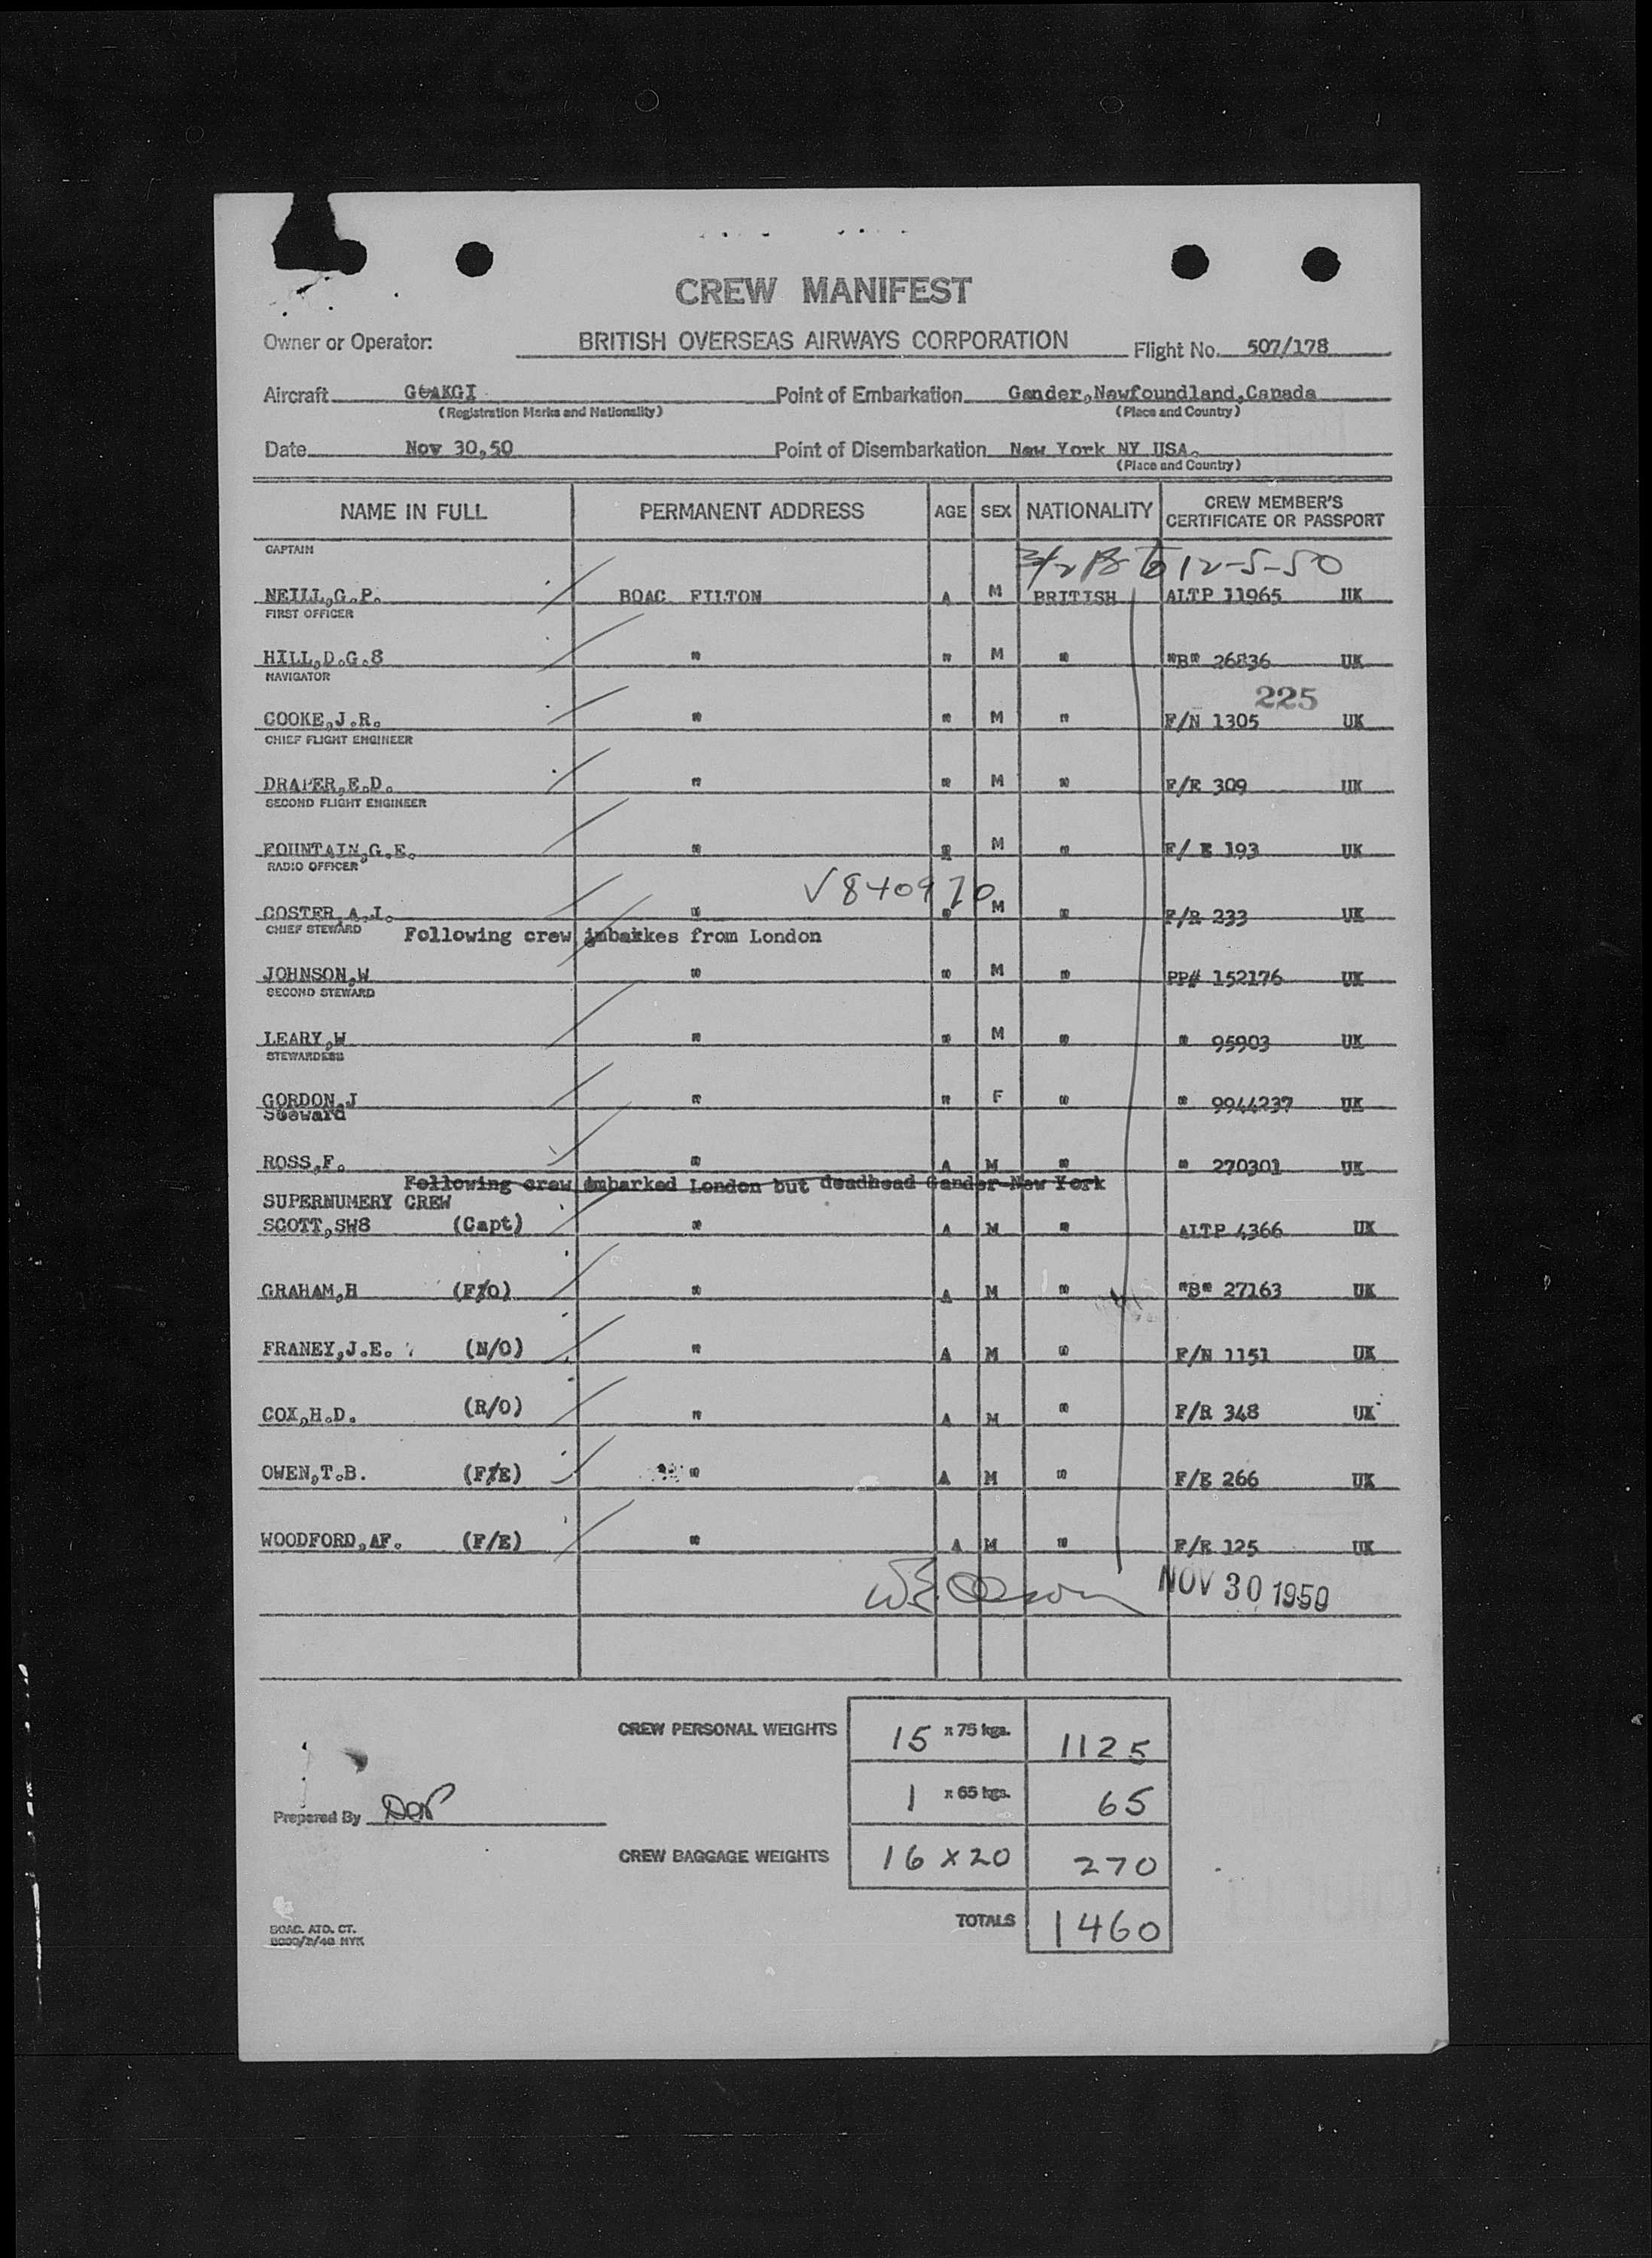 CREW MANIFEST
Owner or Operator: BRITISH OVERSEAS AIRWAYS CORPORATION Flight No. 507/178
Aircraft GtAKGI Point of Embarkation Gander,Newfoundland,Canada
(Registration Marks and Nationality) (Place and Country)
Date Nov 30,50 Point of Disembarkation New York NY USA.
(Place and Country)
NAME IN FULL PERMANENT ADDRESS AGE SEX NATIONALITY CREW MEMBER'S CERTIFICATE OR PASSPORT
CAPTAIN
12-5-50
NEILL,G.P. BOAC FILTON A M BRITISH ALTP 11965 UK
FIRST OFFICER
HILL,D.G.S " " M " "B" 26836 UK
NAVIGATOR
225
COOKE,J.R. " " M " F/N 1305 UK
CHIEF FLIGHT ENGINEER
DRAPER,E.D. " " M " F/E 309 UK
SECOND FLIGHT ENGINEER
FOUNTAIN,G.E. " " M " F/ E 193 UK
RADIO OFFICER
√840970
COSTER,A.J. " " M " F/R 233 UK
CHIEF STEWARD Following crew imbarkes from London
JOHNSON,W " " M " PP# 152176 UK
SECOND STEWARD
LEARY,W " " M " " 95903 UK
STEWARDESS
GORDON,J " " F " " 9944237 UK
Steward
ROSS,F. " A M " " 270301 UK
Following crew embarked London but deadhead Gander-New York
SUPERNUMERY CREW
SCOTT,SWS (Capt) " A M " ALTP 4366 UK
GRAHAM,H (F/O) " A M " "B" 27163 UK
FRANEY,J.E. (N/O) " A M " F/N 1151 UK
COX,H.D. (R/O) " A M " F/R 348 UK
OWEN,T.B. (F/E) " A M " F/E 266 UK
WOODFORD,AF. (F/E) " A M " F/E 125 UK
NOV 30 1950
CREW PERSONAL WEIGHTS 15 x 75 kgs. 1125
1 x 65 kgs. 65
Prepared By
CREW BAGGAGE WEIGHTS 16 x 20 270
TOTALS 1460
BOAC. ATD. CT.